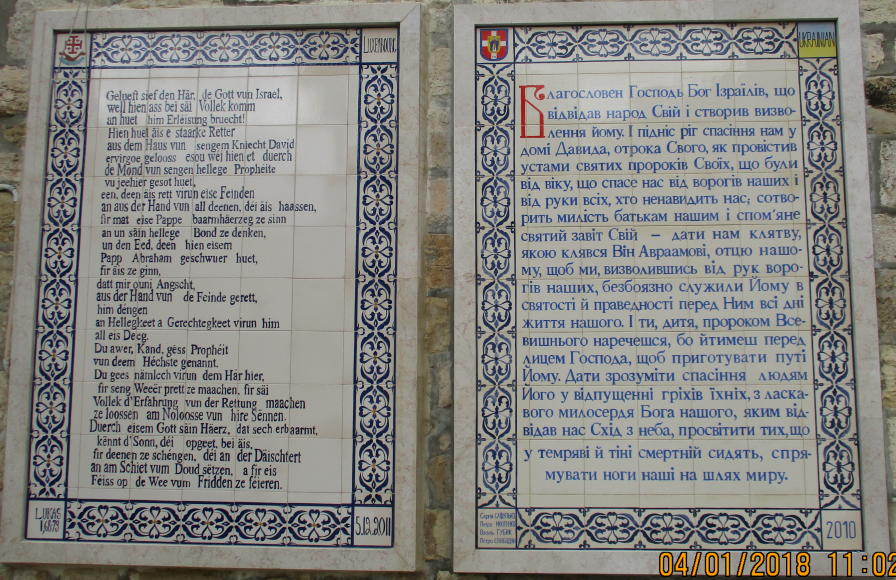 LUXEMBOURG
Gelueft sief den Här, de Gott vun Israel,
well hien ass bei säi Vollek komm
an huet him Erléisung bruecht!
Hien huet äis e staarke Retter
aus dem Haus vun sengem Kniecht David
ervirgoe gelooss esou wéi hien et duerch
de Mond vun sengen hellege Prophéite
vu jeehier gesot huet,
een, deen äis rett virun eise Feinden
an aus der Hand vun all deenen, déi äis haassen,
fir mat eise Pappe baarmhäerzeg ze sinn
an un säin hellege Bond ze denken,
un den Eed, deen hien eisem
Papp Abraham geschwuer huet,
fir äis ze ginn,
datt mir ouni Angscht,
aus der Hand vun de Feinde gerett,
him déngen
an Hellegkeet a Gerechtegkeet virun him
all eis Deeg.
Du awer, Kand, gëss Prophéit
vun deem Héchste genannt.
Du gees nämlech virun dem Här hier,
fir seng Weeër prett ze maachen, fir säi
Vollek d'Erfahrung vun der Rettung maachen
ze loossen am Noloosse vun hire Sënnen.
Duerch eisem Gott säin Häerz, dat sech erbaarmt,
kënnt d'Sonn, déi opgeet, bei äis,
fir deenen ze schéngen, déi an der Däischtert
an am Schiet vum Doud sëtzen, a fir eis
Féiss op de Wee vum Fridden ze féieren.
LUKAS
1,68-79
5.12.2011
UKRAINIAN
Благословен Господь Бог Ізраїлів, що
відвідав народ Свій і створив визво-
лення йому. І підніс ріг спасіння нам у
домі Давида, отрока Свого, як провістив
устами святих пророків Своїх, що були
від віку, що спасе нас від ворогів наших і
від руки всіх, хто ненавидить нас; сотво-
рить милість батькам нашим і спом'яне
святий завіт Свій – дати нам клятву,
якою клявся Він Авраамові, отцю нашо-
му, щоб ми, визволившись від рук воро-
гів наших, безбоязно служили Йому в
святості й праведності перед Ним всі дні
життя нашого. І ти, дитя, пророком Все-
вишнього наречешся, бо йтимеш перед
лицем Господа, щоб приготувати путі
Йому. Дати зрозуміти спасіння людям
Його у відпущенні гріхів їхніх, з ласка-
вого милосердя Бога нашого, яким від-
відав нас Схід з неба, просвітити тих, що
у темряві й тіні смертній сидять, спря-
мувати ноги наші на шлях миру.
Сергій
Петро
Василь ГУБИК
Петро
2010
04/01/2018 11:02